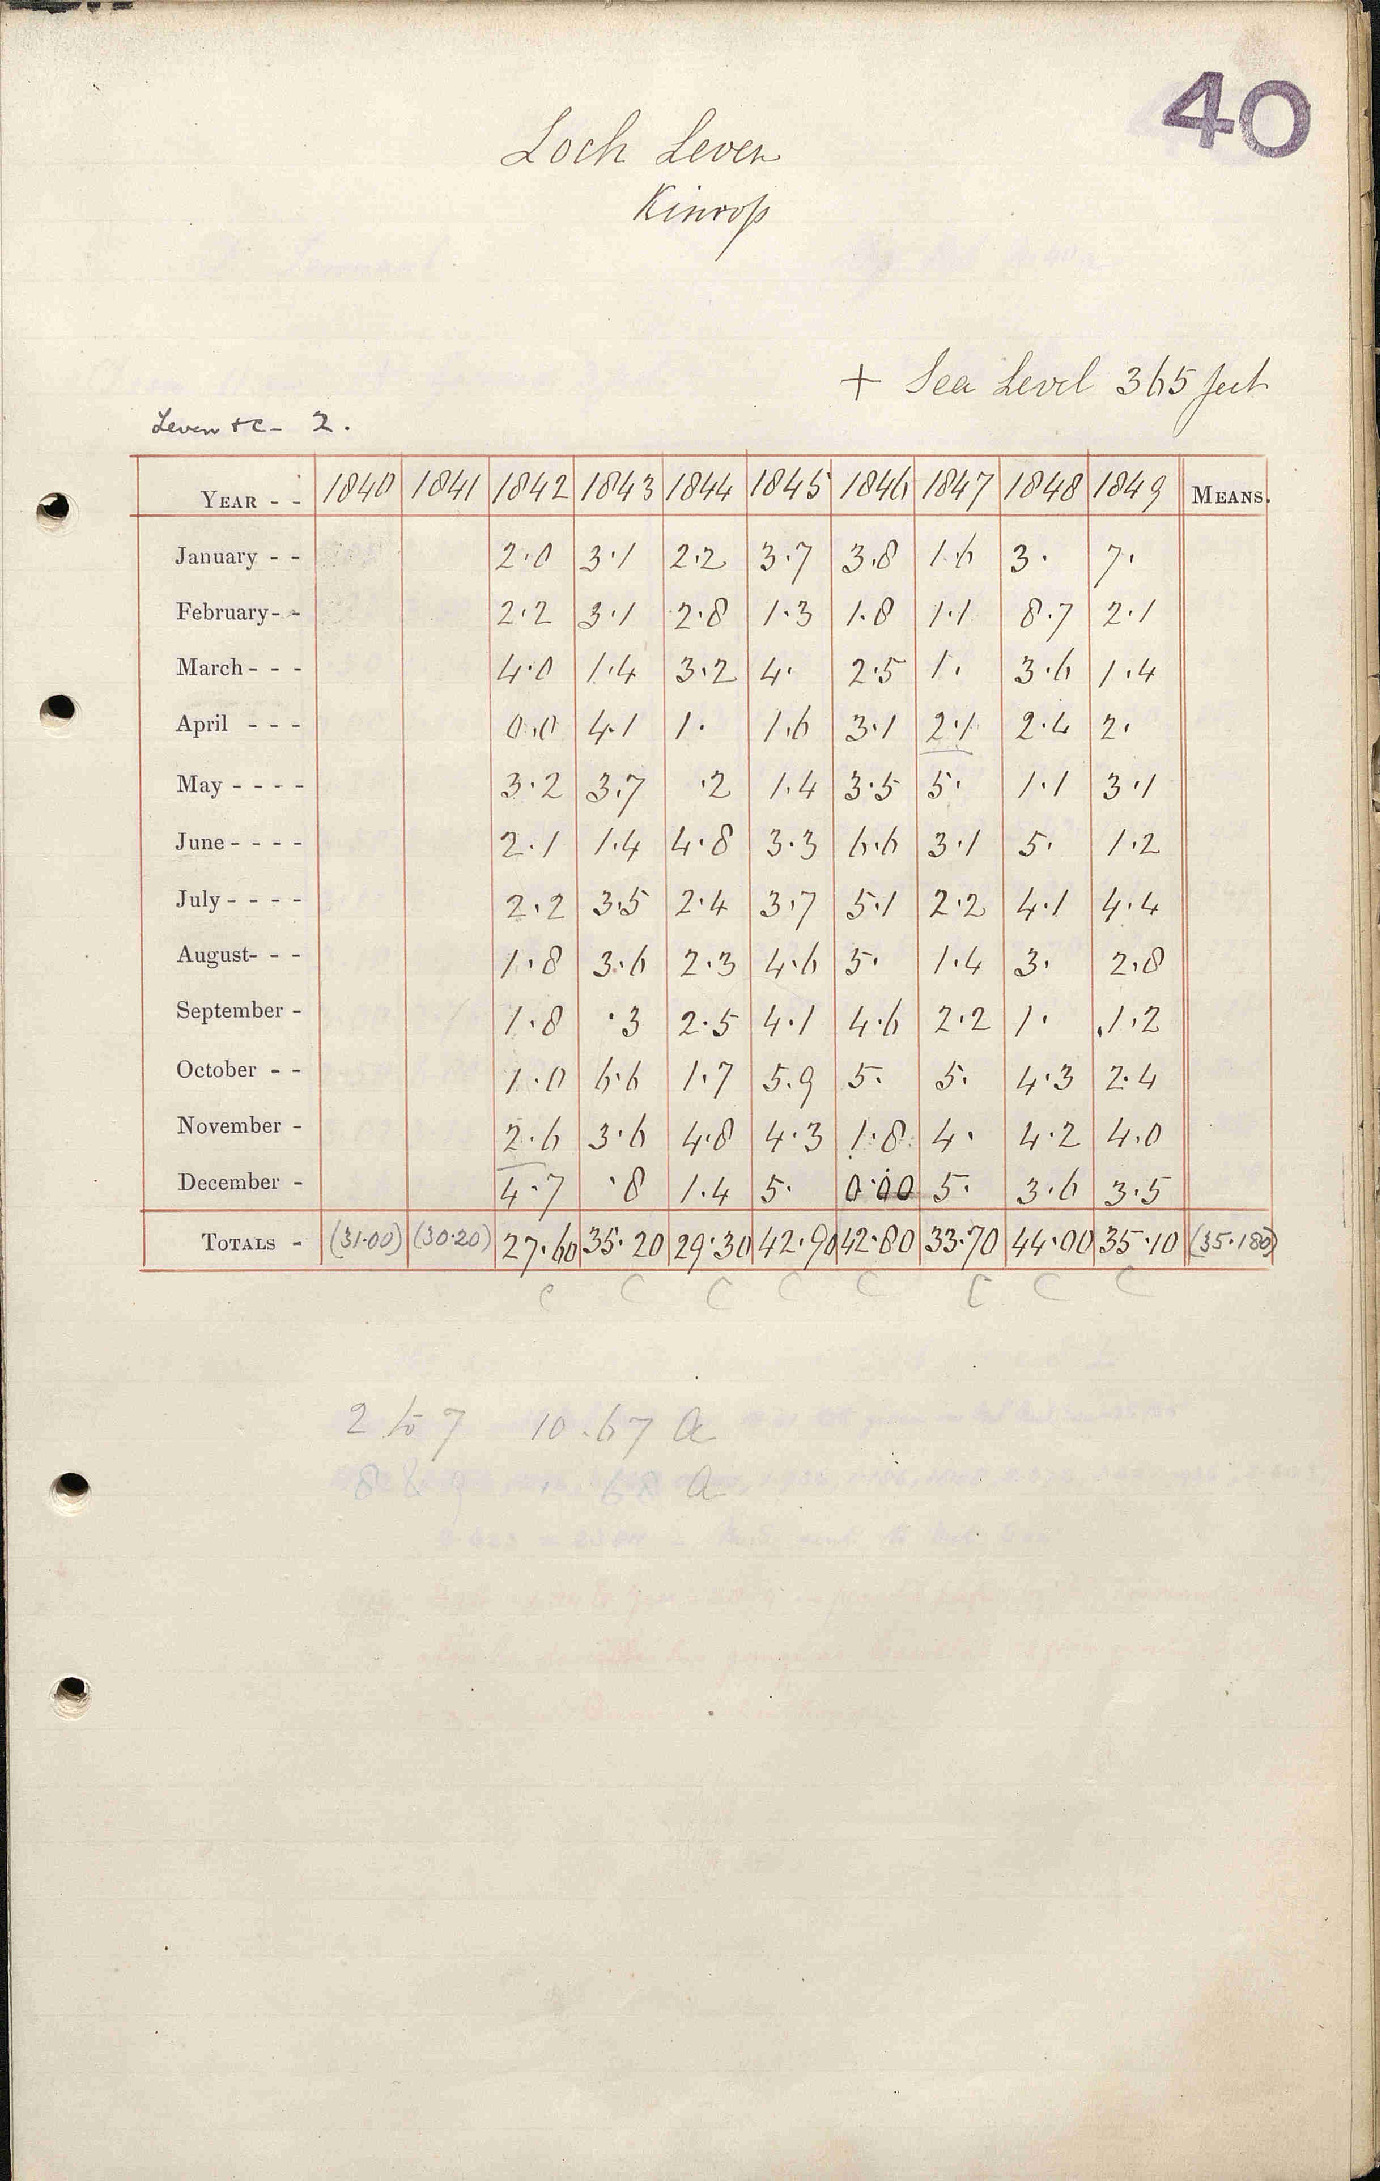 40
Loch Leven
Kinross
+ Sea Level 365 feet
Leven &c - 2.
YEAR - - 1840 1841 1842 1843 1844 1845 1846 1847 1848 1849 MEANS.
January - - 2.0 3.1 2.2 3.7 3.8 1.6 3. 7.
February - - 2.2 3.1 2.8 1.3 1.8 1.1 8.7 2.1
March - - - 4.0 1.4 3.2 4. 2.5 1. 3.6 1.4
April - - - 0.0 4.1 1. 1.6 3.1 2.1 2.4 2.
May - - - - 3.2 3.7 .2 1.4 3.5 5. 1.1 3.1
June - - - - 2.1 1.4 4.8 3.3 6.6 3.1 5. 1.2
July - - - - 2.2 3.5 2.4 3.7 5.1 2.2 4.1 4.4
August - - - 1.8 3.6 2.3 4.6 5. 1.4 3. 2.8
September - 1.8 .3 2.5 4.1 4.6 2.2 1. 1.2
October - - 1.0 6.6 1.7 5.9 5. 5. 4.3 2.4
November - 2.6 3.6 4.8 4.3 1.8 4. 4.2 4.0
December - 4.7 .8 1.4 5. 0.00 5. 3.6 3.5
TOTALS - (31.00) (30.20) 27.60 35.20 29.30 42.90 42.80 33.70 44.00 35.10 (35.180)
C C C C C C C C
2 to 7 10.67 a
8 & 9 " 68 a